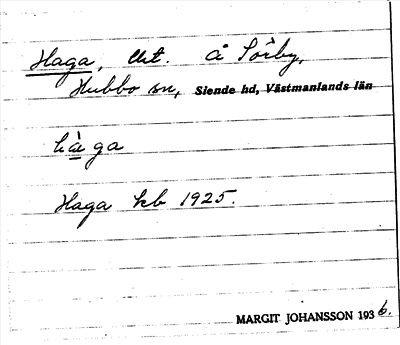 Haga, lht. å Sörby,
Hubbo sn, Siende hd, Västmanlands län
hàga
Haga kb 1925.
MARGIT JOHANSSON 1936.